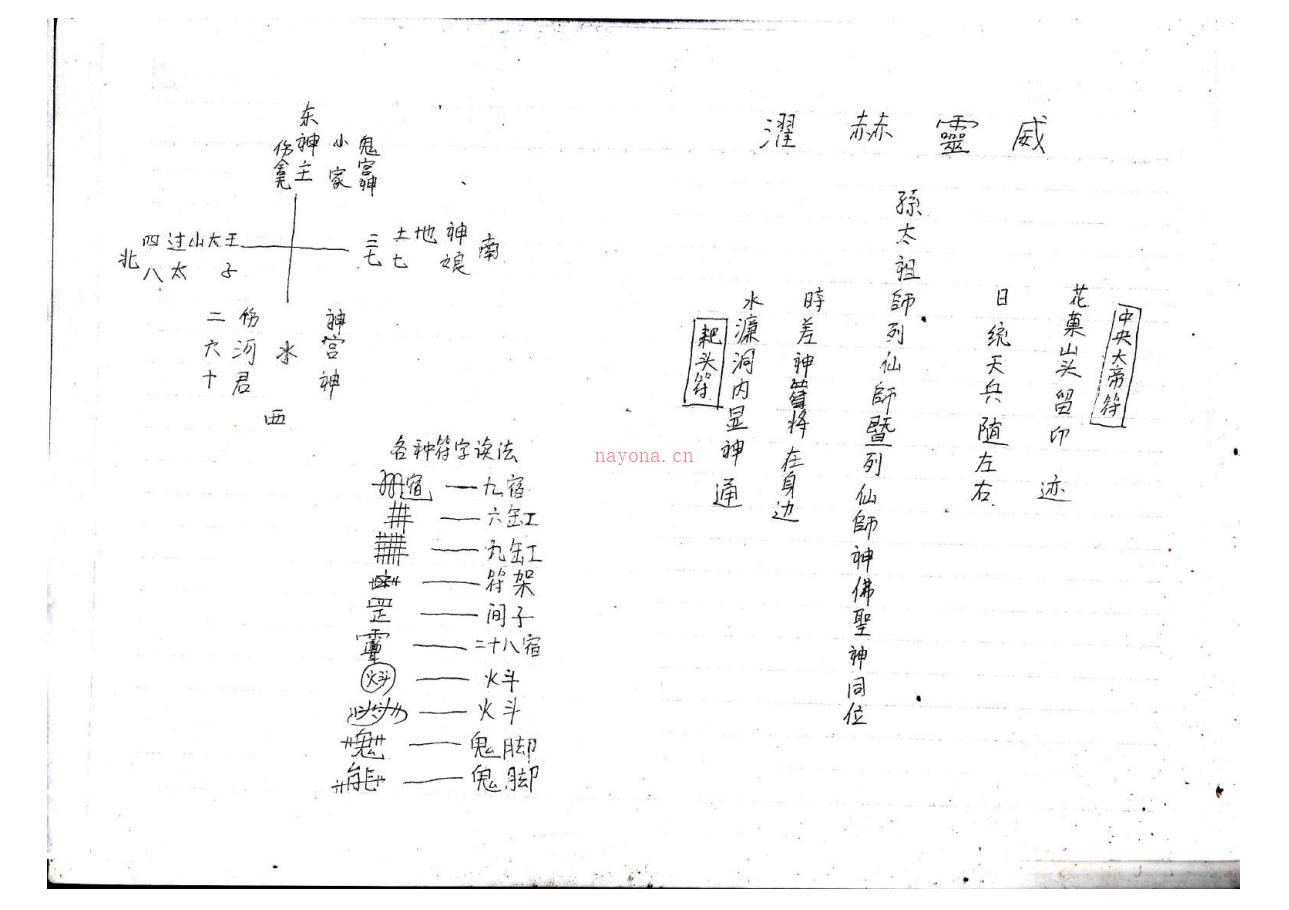 威靈赫濯
中央大帝符
花菓山头留印迹
日统天兵随左右
孫太祖師列仙師暨列仙師神佛聖神同位
時差神将在身边
水濂洞内显神通
耙头符
东
鬼宫神
小家
神主
伤
北
四过山大王
八太子
三土地神
七七娘
南
神宫神
水
伤河君
二六十
西
各种符字读法
九宿
六缸
九缸
符架
罡 间子
二十八宿
火斗 火斗
火斗
鬼脚
鬼脚
nayona.cn